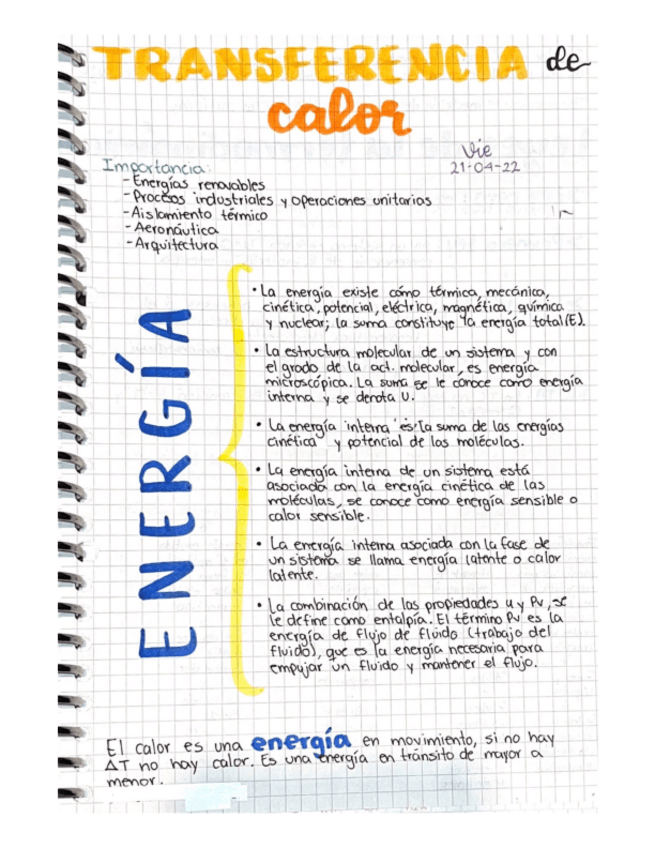 TRANSFERENCIA de
calor
Vie
21-04-22
Importancia:
- Energías renovables
- Procesos industriales y operaciones unitarias
- Aislamiento térmico
- Aeronáutica
- Arquitectura
ENERGÍA
• La energía existe cómo térmica, mecánica,
cinética, potencial, eléctrica, magnética, química
y nuclear; la suma constituye la energía total (E).
• La estructura molecular de un sistema y con
el grado de la act. molecular, es energía
microscópica. La suma se le conoce como energía
interna y se denota U.
• La energía interna es la suma de las energías
cinética y potencial de las moléculas.
• La energía interna de un sistema está
asociada con la energía cinética de las
moléculas, se conoce como energía sensible o
calor sensible.
• La energía interna asociada con la fase de
un sistema se llama energía latente o calor
latente.
• La combinación de las propiedades u y Pv, se
le define como entalpía. El término Pv es la
energía de flujo de fluido (trabajo del
fluido), que es la energía necesaria para
empujar un fluido y mantener el flujo.
El calor es una energía en movimiento, si no hay
ΔT no hay calor. Es una energía en tránsito de mayor a
menor.